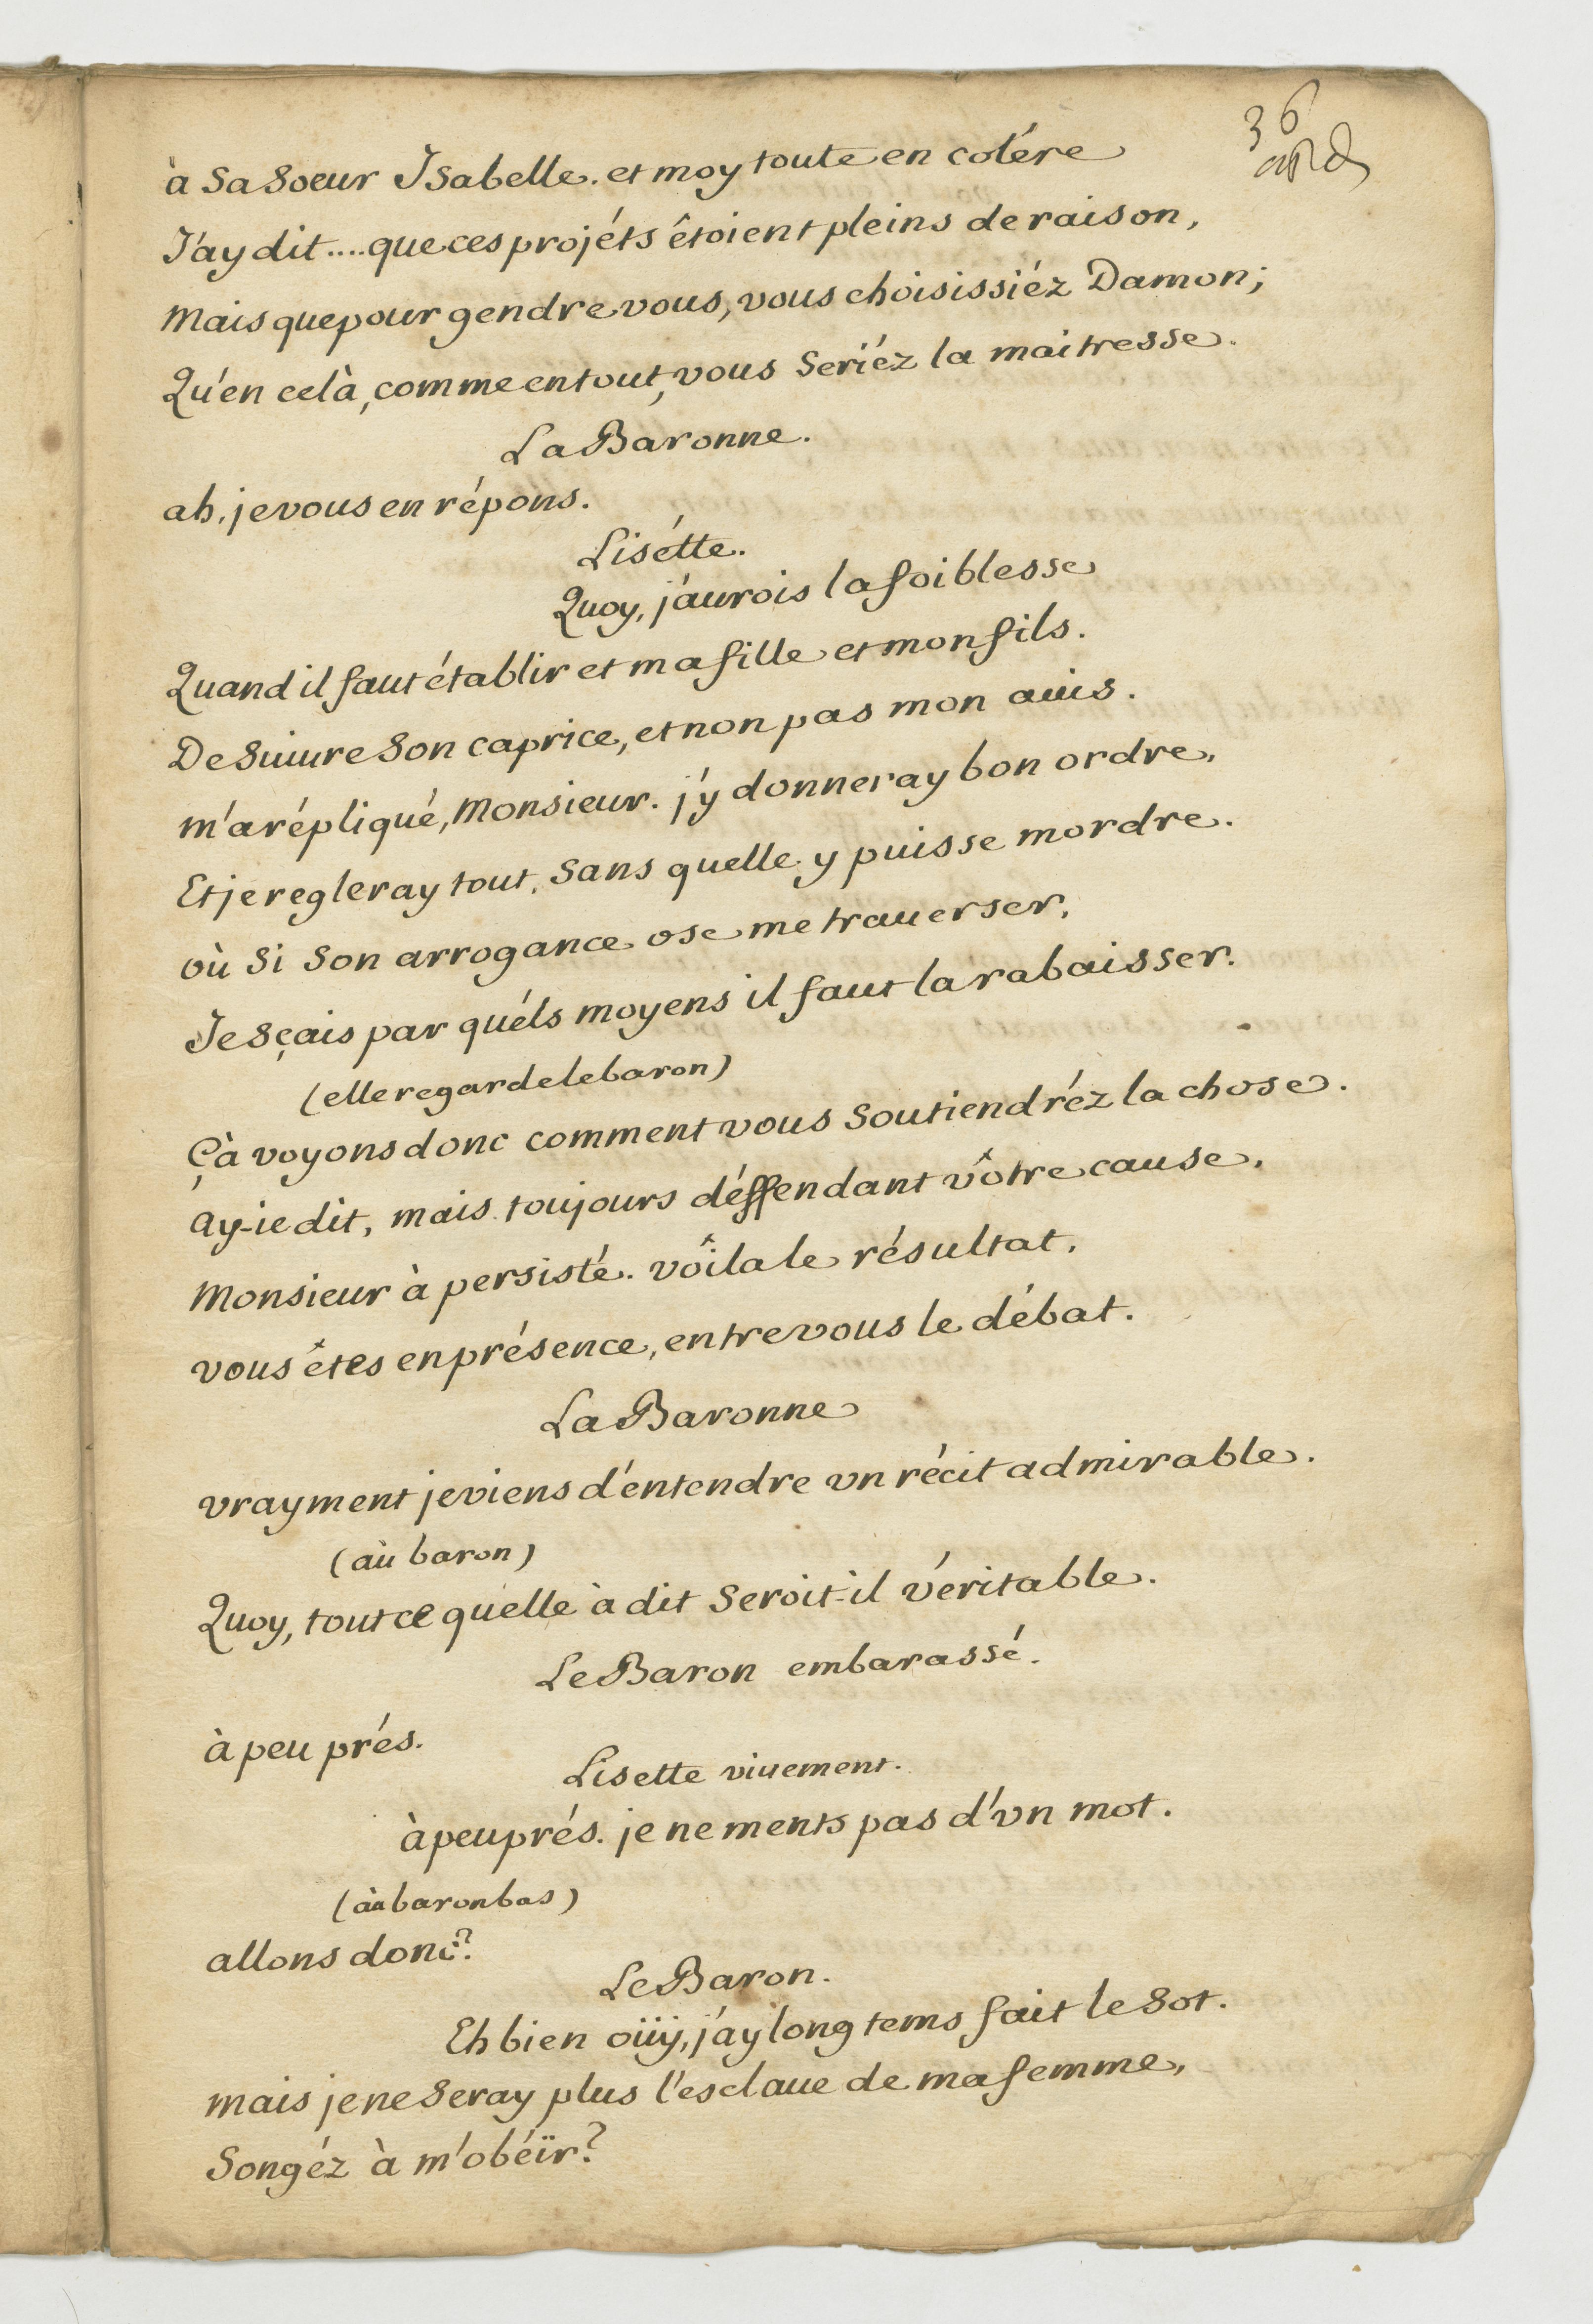 36
à sa soeur Isabelle. et moy toute en colére
J'ay dit .... que ces projéts êtoient pleins de raison,
Mais que pour gendre vous, vous choisissiéz Damon;
Qu'en celà, comme en tout, vous seriéz la maitresse.
La Baronne.
ah, je vous en répons.
Lisétte.
Quoy, j'aurois la foiblesse
Quand il faut établir et ma fille et mon fils.
De suiure son caprice, et non pas mon auis.
m'a répliqué, Monsieur. j'y donneray bon ordre,
Et je regleray tout, sans quelle y puisse mordre.
où si son arrogance ose me trauerser,
Je sçais par quéls moyens il faut la rabaisser.
(elle regarde le baron)
Çà voyons donc comment vous soutiendréz la chose.
ay-ie dit, mais toujours déffendant vôtre cause,
Monsieur à persisté. voîla le résultat,
vous êtes en présence, entre vous le débat.
La Baronne
vrayment je viens d'entendre vn récit admirable.
(aù baron)
Quoy, tout ce qu'elle à dit seroit-il véritable.
Le Baron embarassé.
à peu prés.
Lisette viuement.
à peu prés. je ne ments pas d'vn mot.
(àu baron bas)
allons donc?
Le Baron.
Eh bien oüÿ, j'ay long tems fait le sot.
mais je ne seray plus l'esclaue de ma femme,
Songéz à m'obéïr?